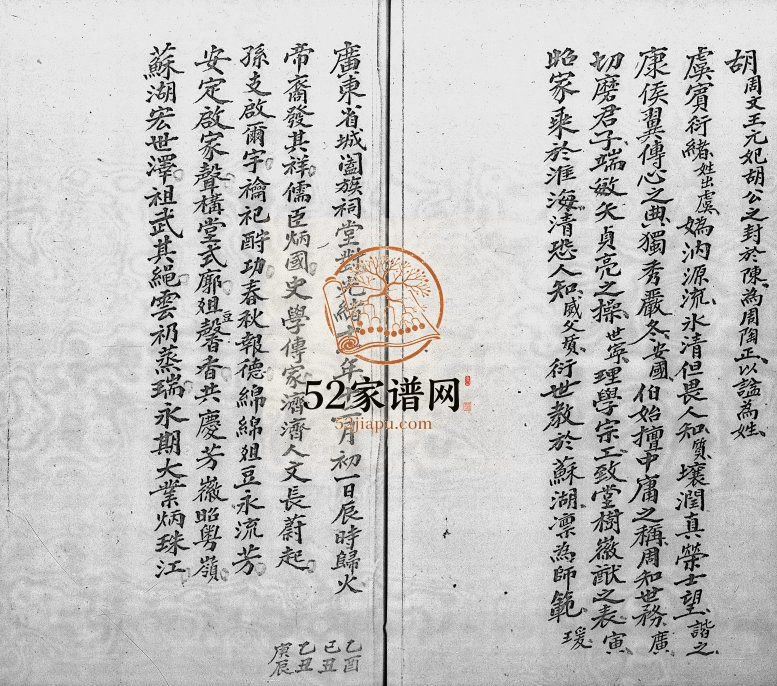 胡周文王元妃胡公之封於陳為周陶正以諡為姓
虞賓衍緒姓出虞媯汭源流氷清但畏人知質壤潤真榮士望諧之
康侯翼傳心之典獨秀嚴冬安國伯始擅中庸之稱周知世務廣
切磨君子端敏矢貞亮之操世寧理學宗工致堂樹徽猷之表寅
昭家乘於淮海清恐人知威父質衍世教於蘇湖凛為師範瑗
廣東省城闔族祠堂對光緒年月初一日辰時歸火
帝裔發其祥儒臣炳國史學傳家濟濟人文長蔚起
孫支啟爾宇禴祀酧功春秋報德綿綿俎豆永流芳
安定啟家聲構堂式廓俎豆馨香共慶芳徽昭粵嶺
蘇湖宏世澤祖武其繩雲礽蒸瑞永期大業炳珠江
乙酉
己丑
乙丑
庚辰
52家谱网
52jiapu.com